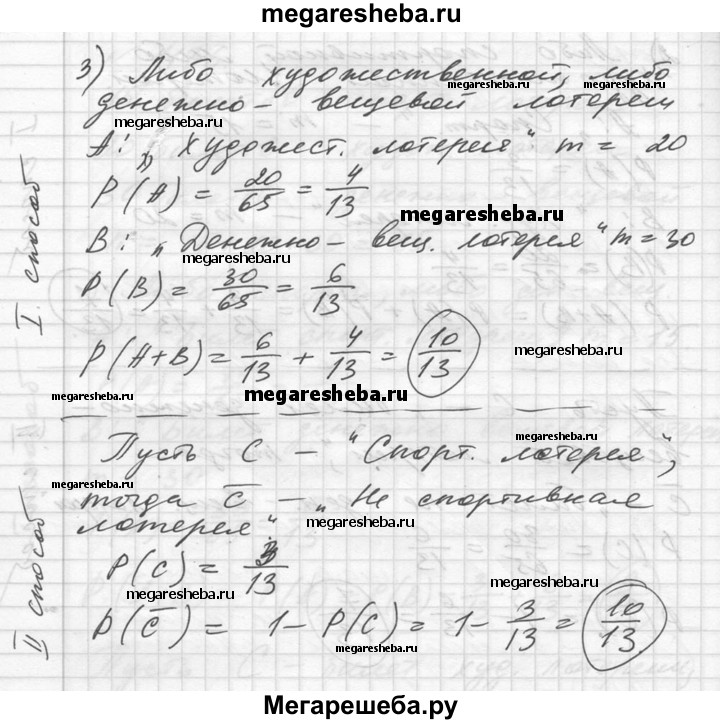 megaresheba.ru
3) Либо художественной, либо
megaresheba.ru megaresheba.ru
денежно - вещевой лотереи
megaresheba.ru megaresheba.ru
A: „Художест. лотерея“ m = 20
P(A) = 20/65 = 4/13
megaresheba.ru
B: „Денежно - вещ. лотерея“ m = 30
P(B) = 30/65 = 6/13
I способ
P(A+B) = 6/13 + 4/13 = 10/13
megaresheba.ru
megaresheba.ru
megaresheba.ru
Пусть C - "Спорт. лотерея",
megaresheba.ru
megaresheba.ru
тогда C̅ - „Не спортивная
лотерея“.
megaresheba.ru
P(C) = 3/13
megaresheba.ru
II способ
P(C̅) = 1 - P(C) = 1 - 3/13 = 10/13
megaresheba.ru
megaresheba.ru
Мегарешеба.ру